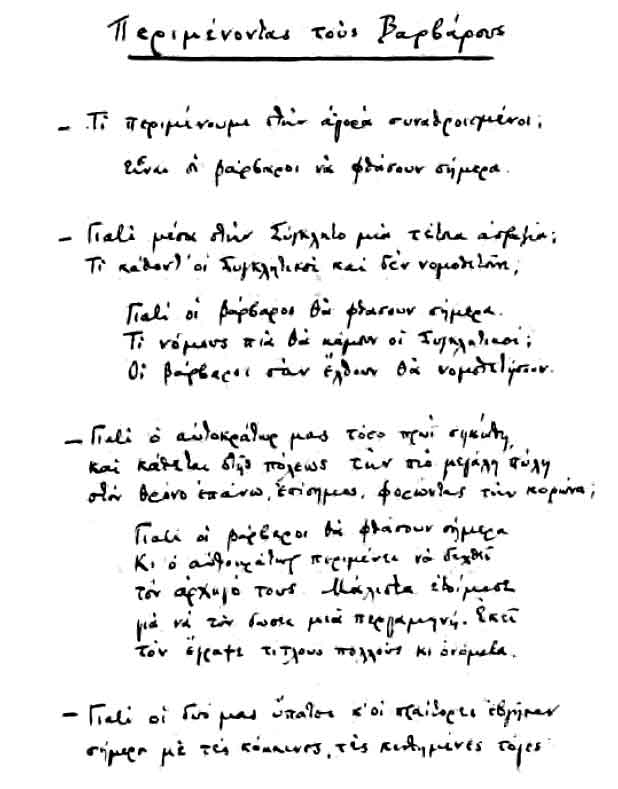 Περιμένοντας τοὺς Βαρβάρους
– Τί περιμένουμε στὴν ἀγορὰ συναθροισμένοι;
Εἶναι οἱ βάρβαροι νὰ φθάσουν σήμερα.
– Γιατί μέσα στὴν Σύγκλητο μιὰ τέτοια ἀπραξία;
Τί κάθοντ' οἱ Συγκλητικοὶ καὶ δὲν νομοθετοῦνε;
Γιατὶ οἱ βάρβαροι θὰ φθάσουν σήμερα.
Τί νόμους πιὰ θὰ κάμουν οἱ Συγκλητικοί;
Οἱ βάρβαροι σὰν ἔλθουν θὰ νομοθετήσουν.
– Γιατί ὁ αὐτοκράτωρ μας τόσο πρωῒ σηκώθη,
καὶ κάθεται στῆς πόλεως τὴν πιὸ μεγάλη πύλη
στὸν θρόνο ἐπάνω, ἐπίσημος, φορώντας τὴν κορώνα;
Γιατὶ οἱ βάρβαροι θὰ φθάσουν σήμερα
Κι ὁ αὐτοκράτωρ περιμένει νὰ δεχθεῖ
τὸν ἀρχηγό τους. Μάλιστα ἑτοίμασε
γιὰ νὰ τὸν δώσει μιὰ περγαμηνή. Ἐκεῖ
τὸν ἔγραψε τίτλους πολλοὺς κι ὀνόματα.
– Γιατί οἱ δυό μας ὕπατοι κ' οἱ πραίτορες ἐβγῆκαν
σήμερα μὲ τὲς κόκκινες, τὲς κεντημένες τόγες